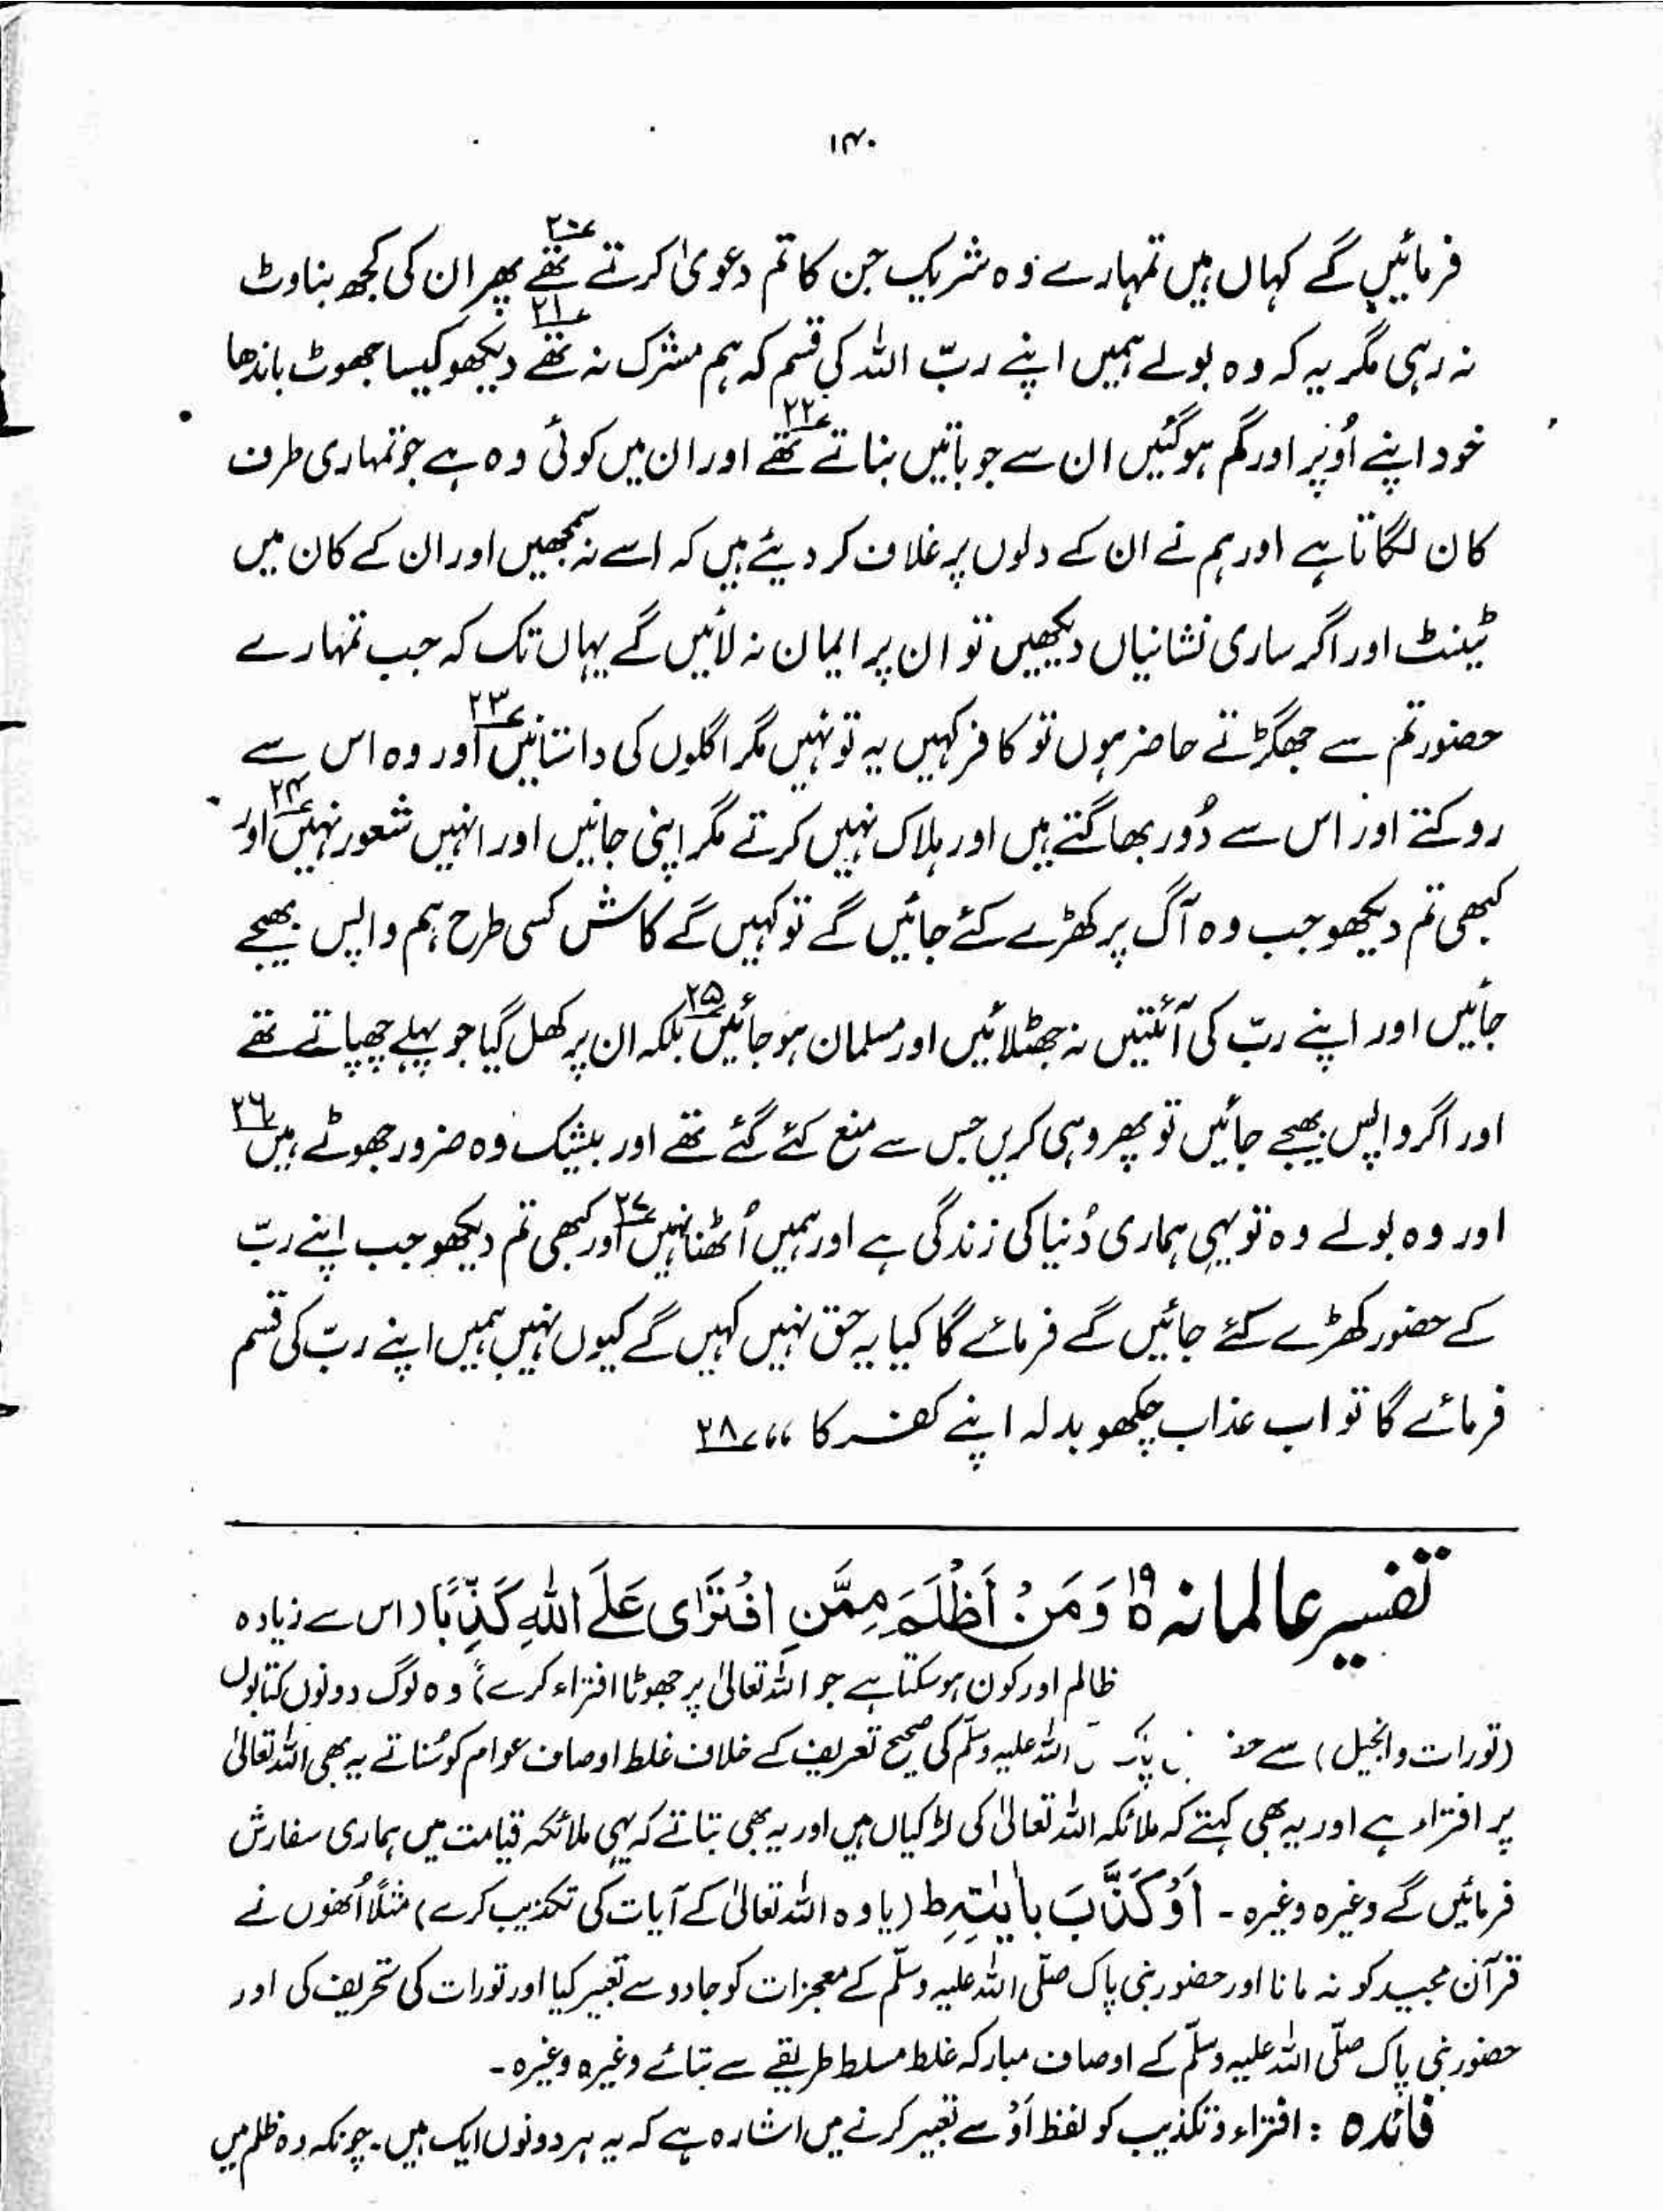 ۱۴۰
فرمائیں گے کہاں ہیں تمہارے وہ شریک جن کا تم دعویٰ کرتے تھے ۲۰ پھر ان کی کچھ بناوٹ
نہ رہی مگر یہ کہ وہ بولے ہمیں اپنے ربّ اللہ کی قسم کہ ہم مشرک نہ تھے ۲۱ دیکھو کیسا جھوٹ باندھا
خود اپنے اُوپر اور گم ہوگئیں ان سے جو باتیں بناتے تھے ۲۲ اور ان میں کوئی وہ ہے جو تمہاری طرف
کان لگاتا ہے اور ہم نے ان کے دلوں پر غلاف کر دیئے ہیں کہ اسے نہ سمجھیں اور ان کے کان میں
ٹینٹ اور اگر ساری نشانیاں دیکھیں تو ان پر ایمان نہ لائیں گے یہاں تک کہ جب تمہارے
حضور تم سے جھگڑتے حاضر ہوں تو کافر کہیں یہ تو نہیں مگر اگلوں کی داستانیں ۲۳ اور وہ اس سے
روکتے اور اس سے دُور بھاگتے ہیں اور ہلاک نہیں کرتے مگر اپنی جانیں اور انہیں شعور نہیں ۲۴ اور
کبھی تم دیکھو جب وہ آگ پر کھڑے کئے جائیں گے تو کہیں گے کاش کسی طرح ہم واپس بھیجے
جائیں اور اپنے ربّ کی آئتیں نہ جھٹلائیں اور مسلمان ہو جائیں ۲۵ بلکہ ان پر کھل گیا جو پہلے چھپاتے تھے
اور اگر واپس بھیجے جائیں تو پھر وہی کریں جس سے منع کئے گئے تھے اور بیشک وہ ضرور جھوٹے ہیں ۲۶
اور وہ بولے وہ تو یہی ہماری دُنیا کی زندگی ہے اور ہمیں اُٹھنا نہیں ۲۷ اور کبھی تم دیکھو جب اپنے ربّ
کے حضور کھڑے کئے جائیں گے فرمائے گا کیا یہ حق نہیں کہیں گے کیوں نہیں ہمیں اپنے ربّ کی قسم
فرمائے گا تو اب عذاب چکھو بدلہ اپنے کفر کا ،، ۲۸
تفسیر عالمانہ ۱۹ وَمَنْ اَظْلَمَ مِمَّنِ افْتَرَای عَلَے اللہِ کَذِبًا ( اس سے زیادہ
ظالم اور کون ہوسکتا ہے جو اللہ تعالیٰ پر جھوٹا افتراء کرے ) وہ لوگ دونوں کتابوں
(تورات و انجیل) سے پاک اللہ علیہ وسلّم کی صحیح تعریف کے خلاف غلط اوصاف عوام کو سُناتے یہ بھی اللہ تعالیٰ
پر افتراء ہے اور یہ بھی کہتے کہ ملائکہ اللہ تعالیٰ کی لڑکیاں ہیں اور یہ بھی بتاتے کہ یہی ملائکہ قیامت میں ہماری سفارش
فرمائیں گے وغیرہ وغیرہ ۔ اَوْ کَذَّبَ بِاٰیٰتِہٖط (یا وہ اللہ تعالیٰ کے آیات کی تکذیب کرے) مثلاً اُنھوں نے
قرآن مجید کو نہ مانا اور حضور نبی پاک صلّی اللہ علیہ وسلّم کے معجزات کو جادو سے تعبیر کیا اور تورات کی تحریف کی اور
حضور نبی پاک صلّی اللہ علیہ وسلّم کے اوصاف مبارکہ غلط مسلط طریقے سے بتائے وغیرہ وغیرہ ۔
فائدہ : افتراء و تکذیب کو لفظ اَوْ سے تعبیر کرنے میں اشارہ ہے کہ یہ ہر دونوں ایک ہیں ۔ چونکہ وہ ظلم میں